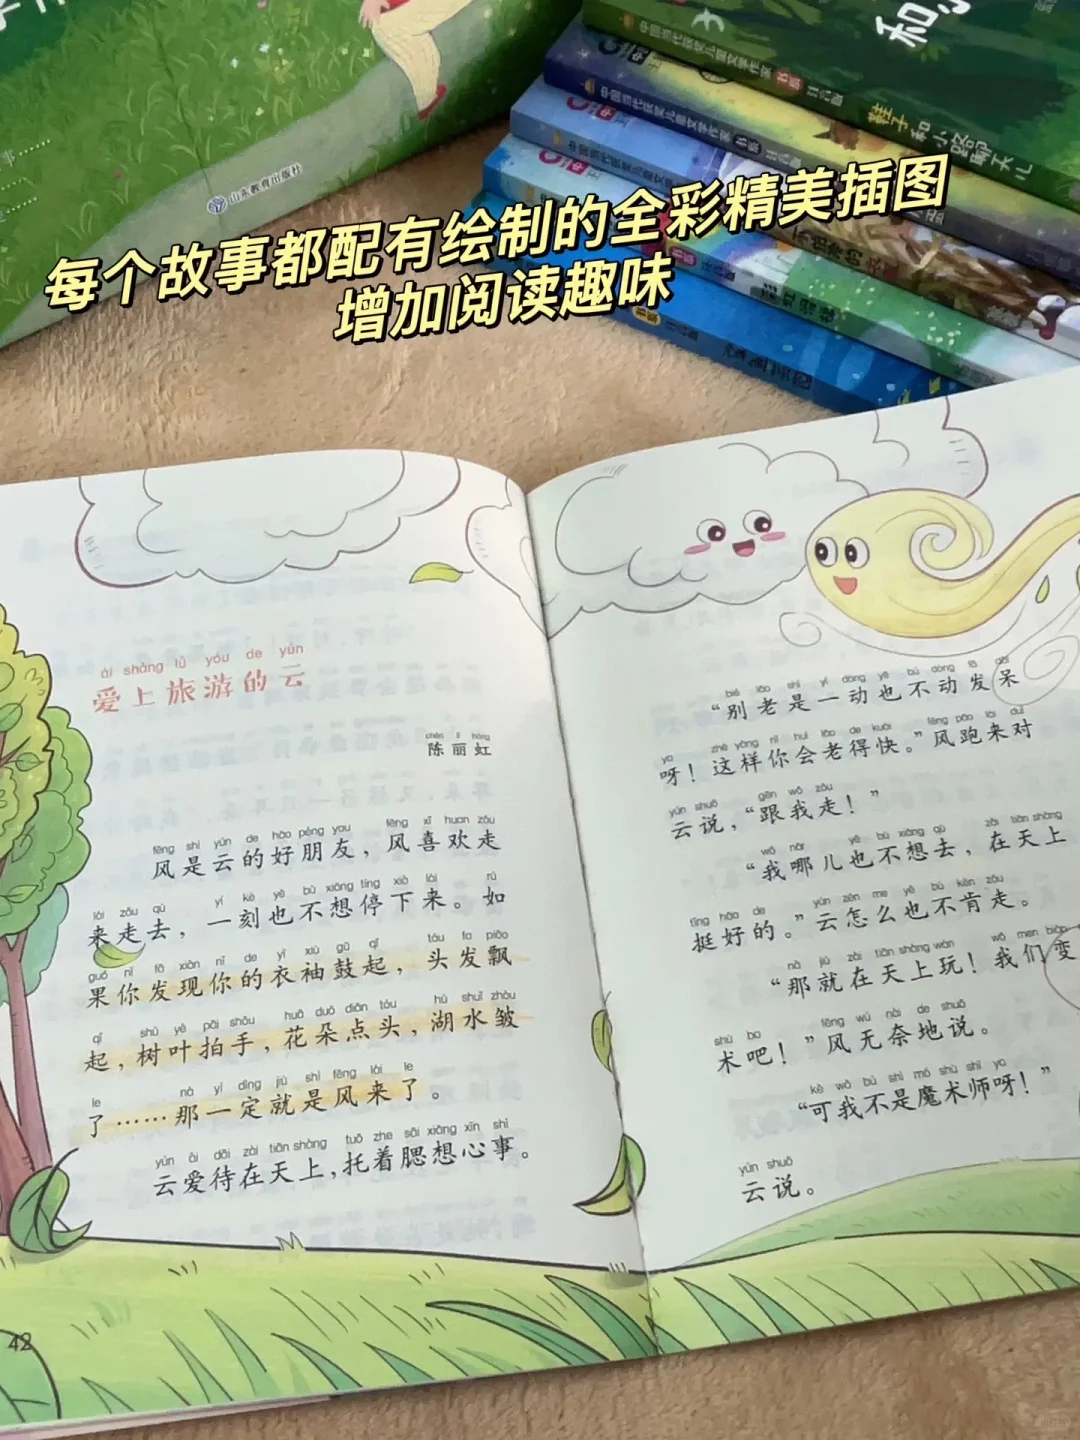 山东教育出版社
中国当代获奖儿童文学作家书系 注音版
鞋子和小路聊天儿
每个故事都配有绘制的全彩精美插图
增加阅读趣味
ài shàng lǚ yóu de yún
爱上旅游的云
chén lì hóng
陈丽虹
fēng shì yún de hǎo péng you fēng xǐ huan zǒu
风是云的好朋友，风喜欢走
lái zǒu qù yí kè yě bù xiǎng tíng xià lái rú
来走去，一刻也不想停下来。如
guǒ nǐ fā xiàn nǐ de yī xiù gǔ qǐ tóu fa piāo
果你发现你的衣袖鼓起，头发飘
qǐ shù yè pāi shǒu huā duǒ diǎn tóu hú shuǐ zhòu
起，树叶拍手，花朵点头，湖水皱
le nà yí dìng jiù shì fēng lái le
了……那一定就是风来了。
yún ài dāi zài tiān shàng tuō zhe sāi xiǎng xīn shì
云爱待在天上，托着腮想心事。
42
bié lǎo shì yí dòng yě bú dòng fā dāi
“别老是一动也不动发呆
ya zhè yàng nǐ huì lǎo de kuài fēng pǎo lái duì
呀！这样你会老得快。”风跑来对
yún shuō gēn wǒ zǒu
云说，“跟我走！”
wǒ nǎr yě bù xiǎng qù zài tiān shàng
“我哪儿也不想去，在天上
tǐng hǎo de yún zěn me yě bù kěn zǒu
挺好的。”云怎么也不肯走。
nà jiù zài tiān shàng wán wǒ men biàn
“那就在天上玩！我们变
shù ba fēng wú nài de shuō
术吧！”风无奈地说。
kě wǒ bú shì mó shù shī ya
“可我不是魔术师呀！”
yún shuō
云说。